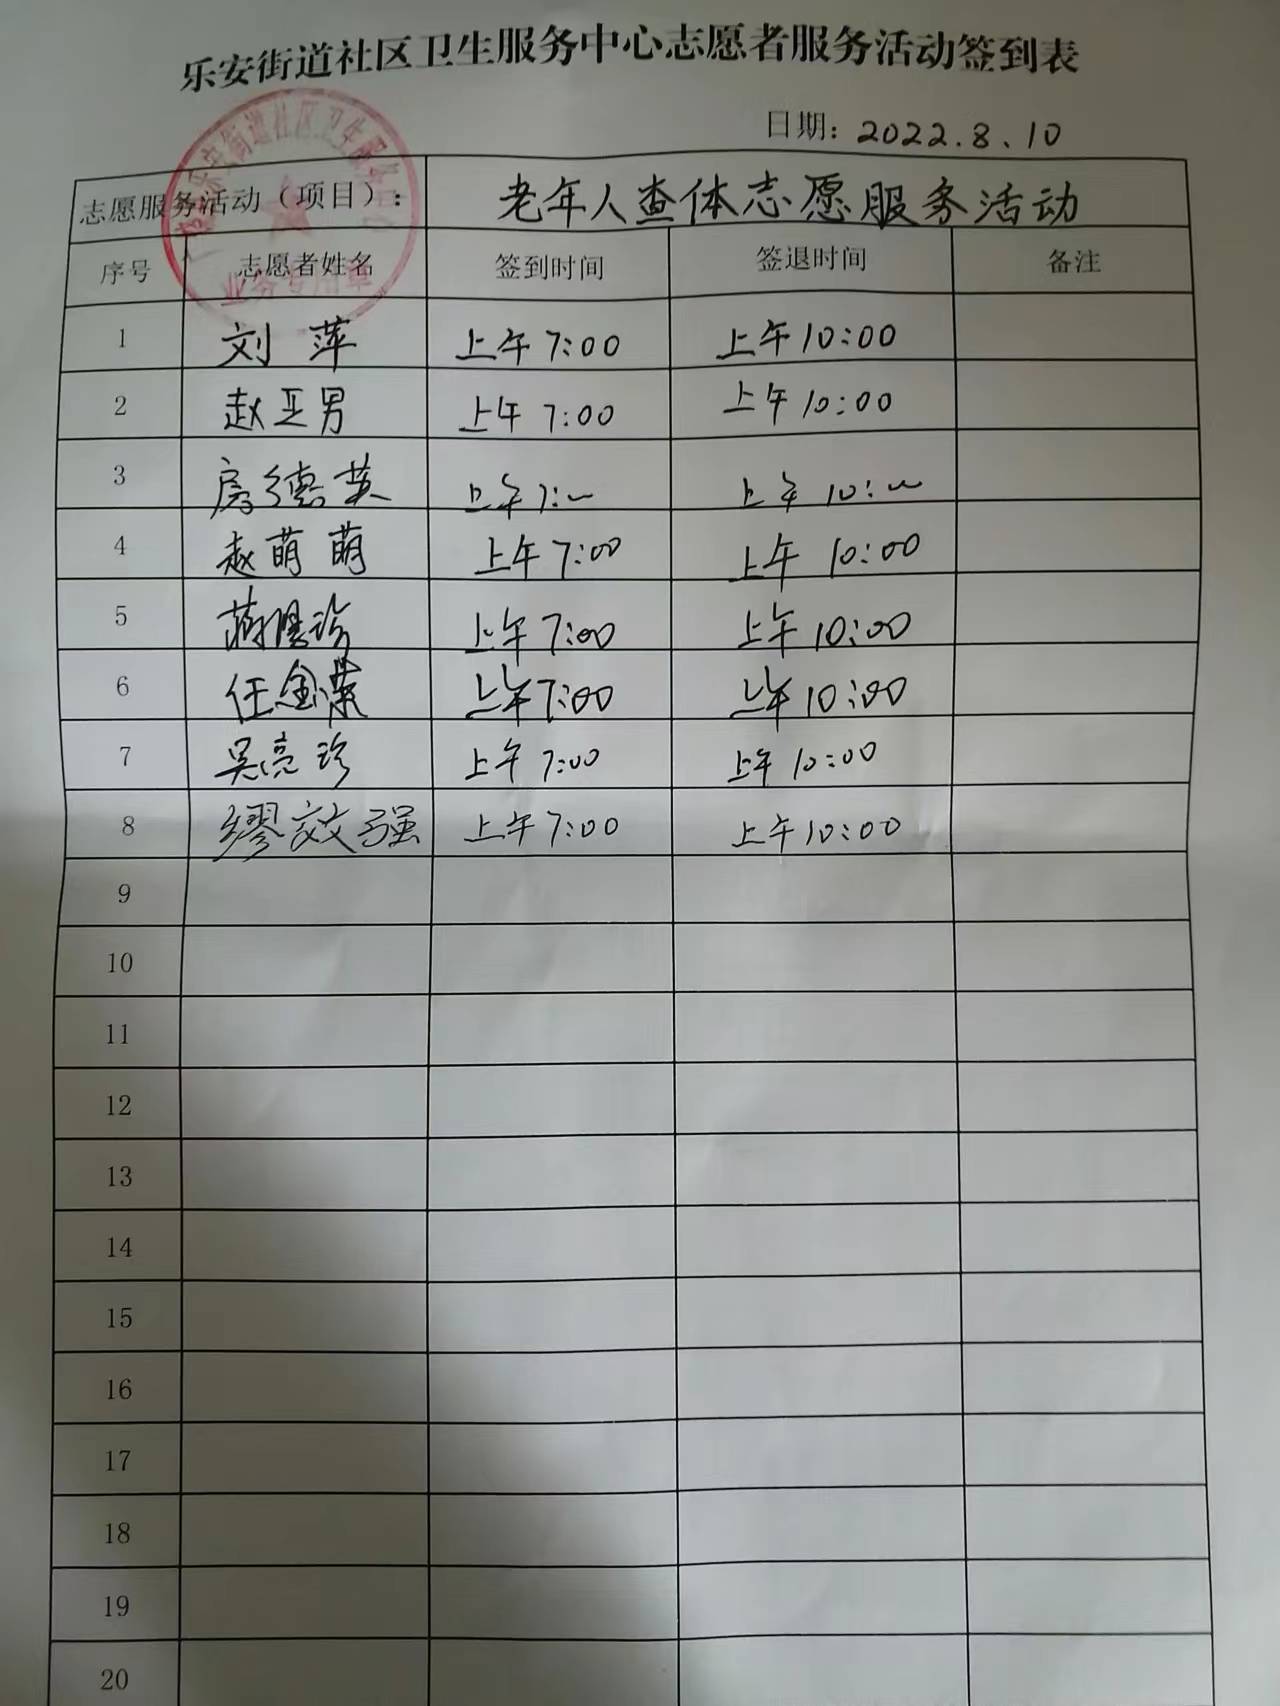 乐安街道社区卫生服务中心志愿者服务活动签到表
日期：2022.8.10
志愿服务活动（项目）： 老年人查体志愿服务活动
序号 志愿者姓名 签到时间 签退时间 备注
乐安街道社区卫生服务中心
业务专用章
1 刘萍 上午7:00 上午10:00
2 赵亚男 上午7:00 上午10:00
3 房德英 上午7:00 上午10:00
4 赵萌萌 上午7:00 上午10:00
5 上午7:00 上午10:00
6 任金荣 上午7:00 上午10:00
7 吴亮珍 上午7:00 上午10:00
8 缪效强 上午7:00 上午10:00
9
10
11
12
13
14
15
16
17
18
19
20